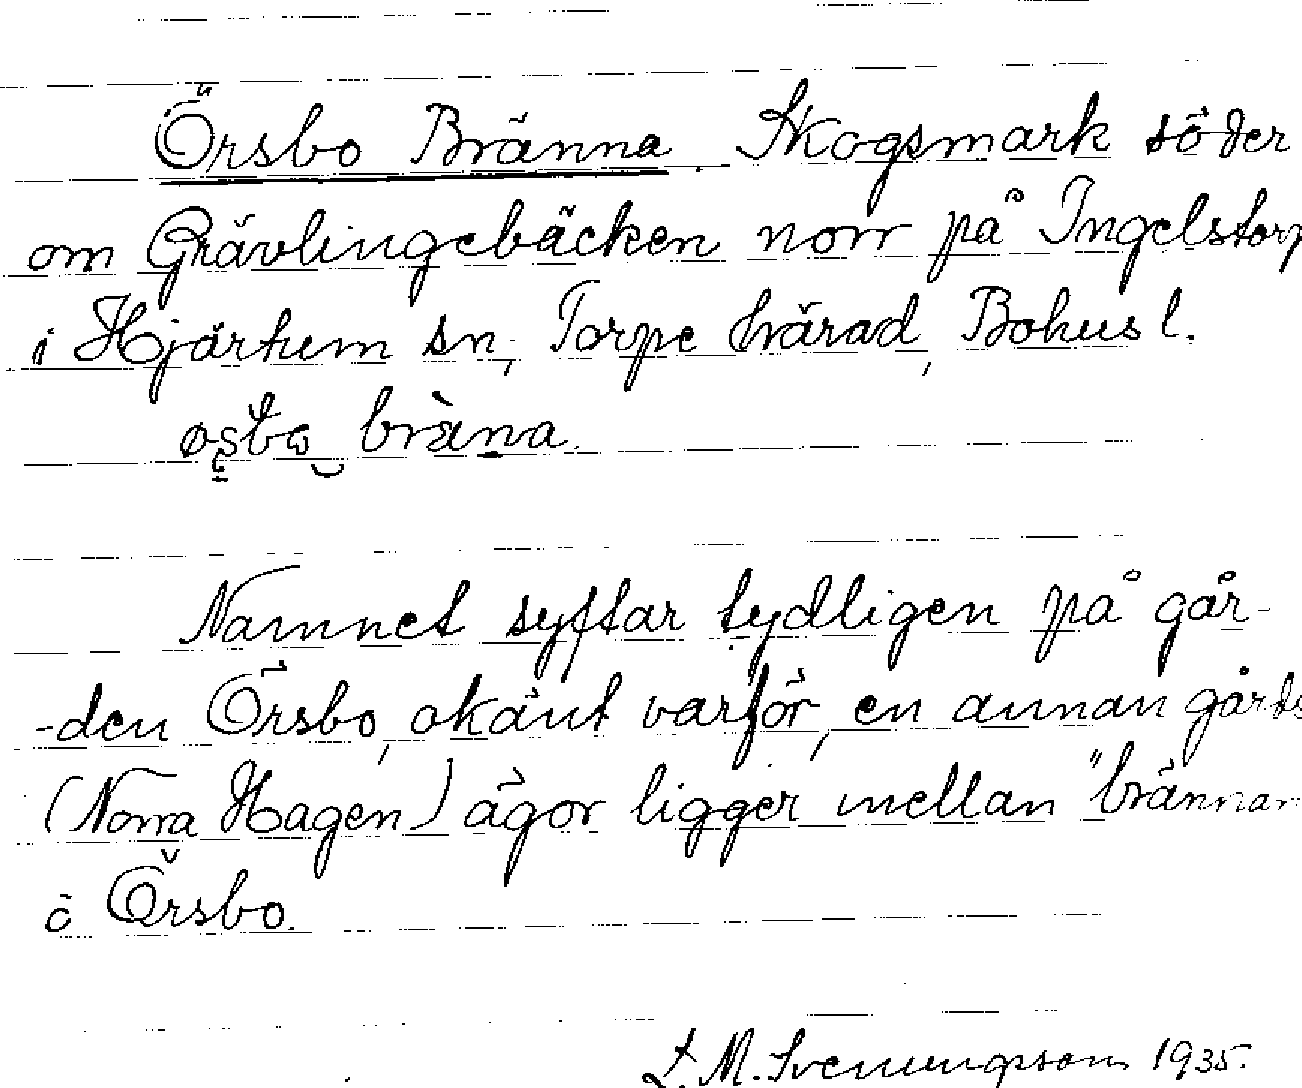 Örsbo Bränna. Skogsmark söder
om Grävlingebäcken norr på Ingelstorp
i Hjärtum sn, Torpe härad, Bohus l.
bräna.
Namnet syftar tydligen på går-
-den Örsbo, okänt varför, en annan gårds
(Norra Hagen) ägor ligger mellan "brännan
o Örsbo.
L. M. Svenungsson 1935.